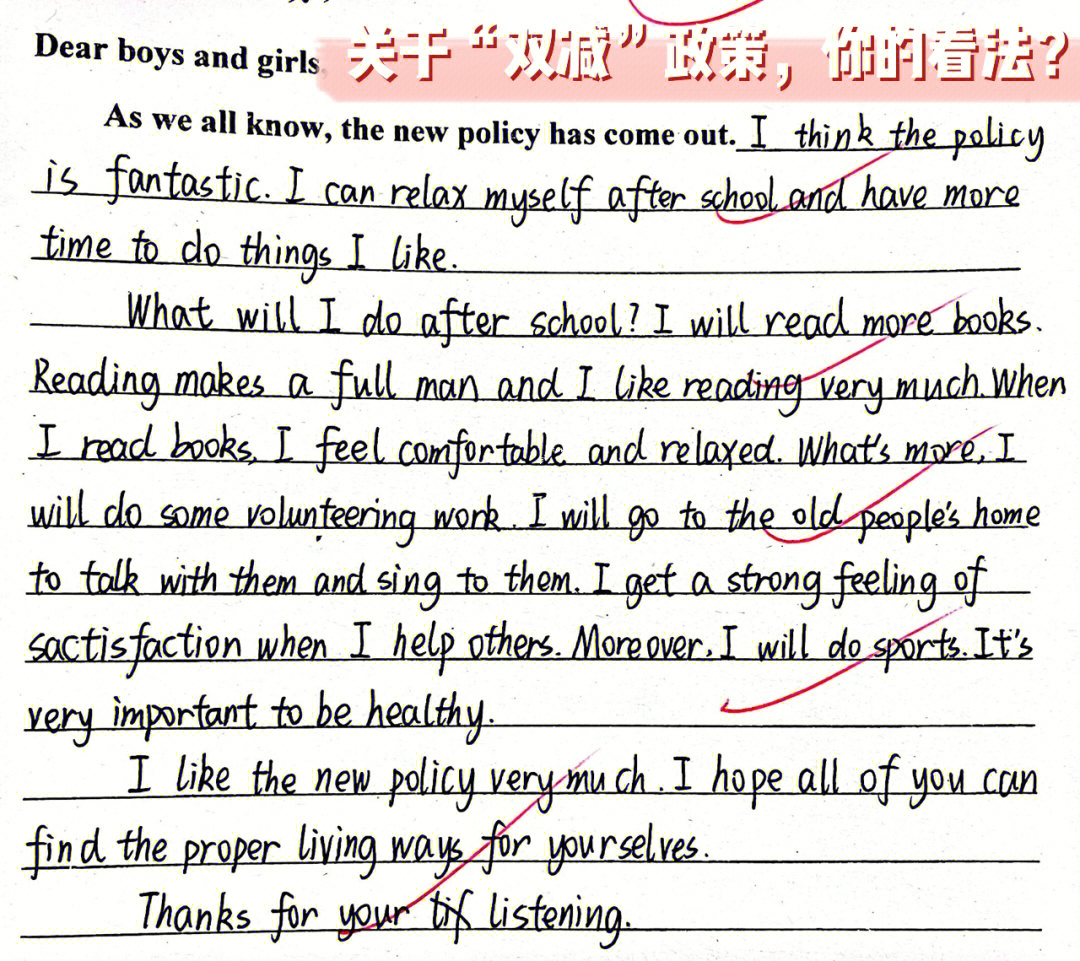 Dear boys and girls, 关于“双减”政策，你的看法？
As we all know, the new policy has come out. I think the policy
is fantastic. I can relax myself after school and have more
time to do things I like.
What will I do after school? I will read more books.
Reading makes a full man and I like reading very much. When
I read books, I feel comfortable and relaxed. What's more, I
will do some volunteering work. I will go to the old people's home
to talk with them and sing to them. I get a strong feeling of
sactisfaction when I help others. Moreover, I will do sports. It's
very important to be healthy.
I like the new policy very much. I hope all of you can
find the proper living ways for yourselves.
Thanks for your listening.